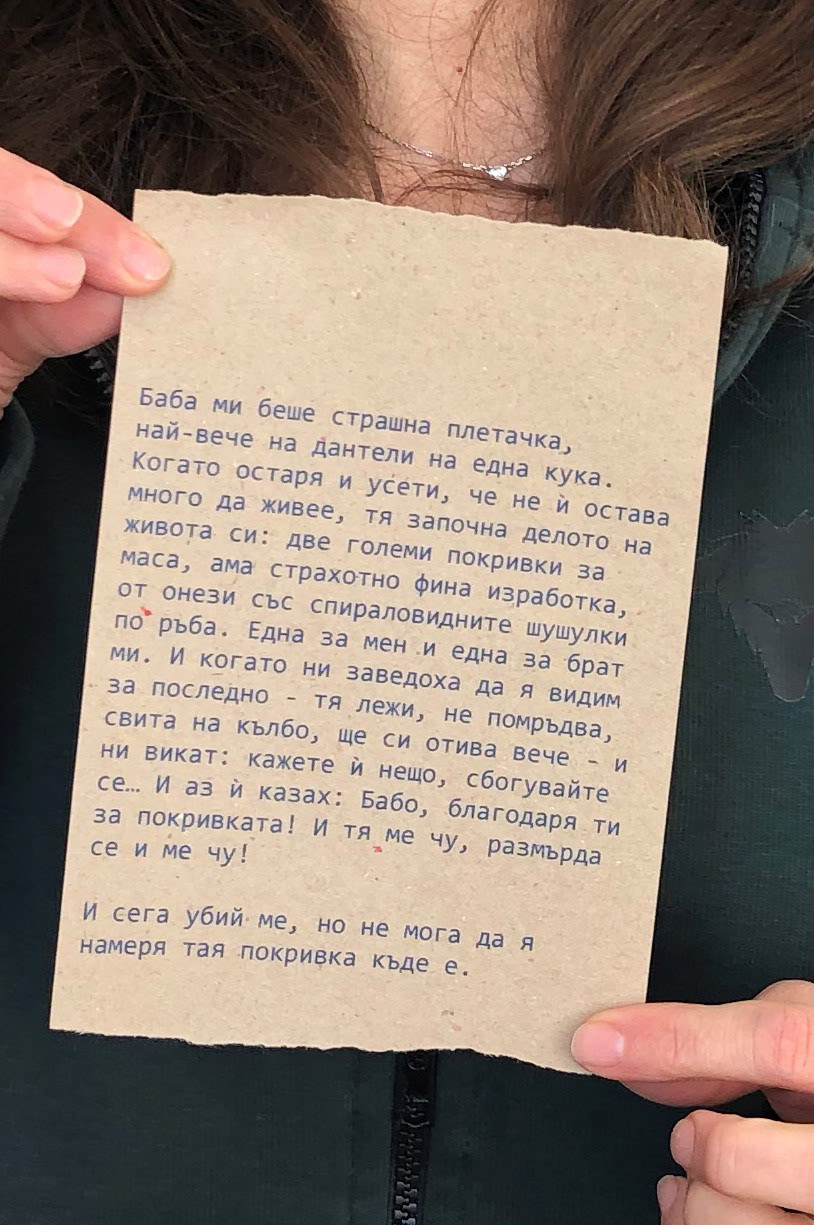 Баба ми беше страшна плетачка,
най-вече на дантели на една кука.
Когато остаря и усети, че не ѝ остава
много да живее, тя започна делото на
живота си: две големи покривки за
маса, ама страхотно фина изработка,
от онези със спираловидните шушулки
по ръба. Една за мен и една за брат
ми. И когато ни заведоха да я видим
за последно – тя лежи, не помръдва,
свита на кълбо, ще си отива вече – и
ни викат: кажете ѝ нещо, сбогувайте
се… И аз ѝ казах: Бабо, благодаря ти
за покривката! И тя ме чу, размърда
се и ме чу!

И сега убий ме, но не мога да я
намеря тая покривка къде е.